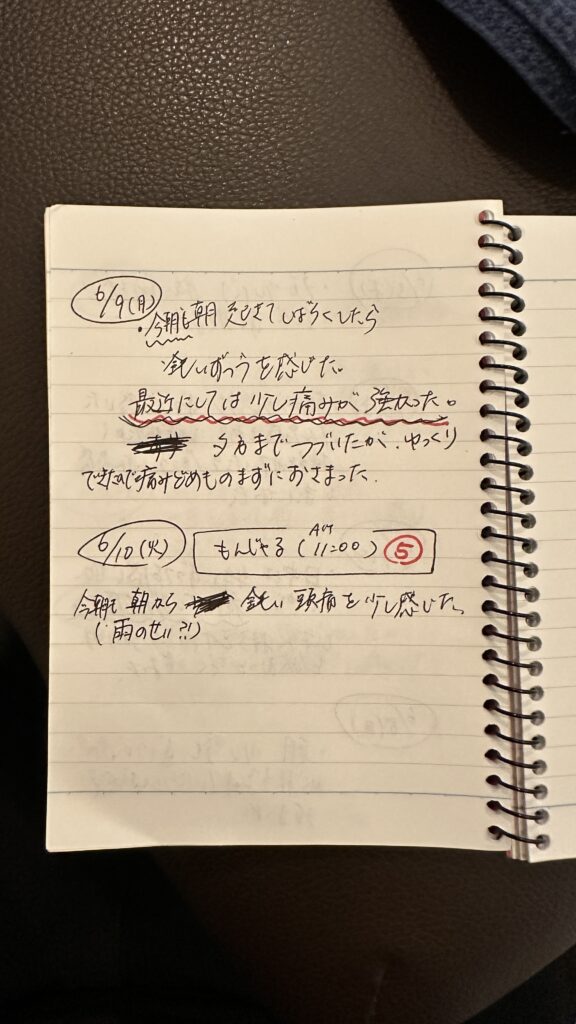 6/9(月)
・今朝も朝起きてしばらくしたら
鈍いずつうを感じた。
最近にしては少し痛みが強かった。
夕方までつづいたが、ゆっくり
できたので痛みどめものまずにおさまった.
6/10(火) もんじゃる(AM11:00) ⑤
今朝も朝から 鈍い頭痛を少し感じた。
(雨のせい?!)